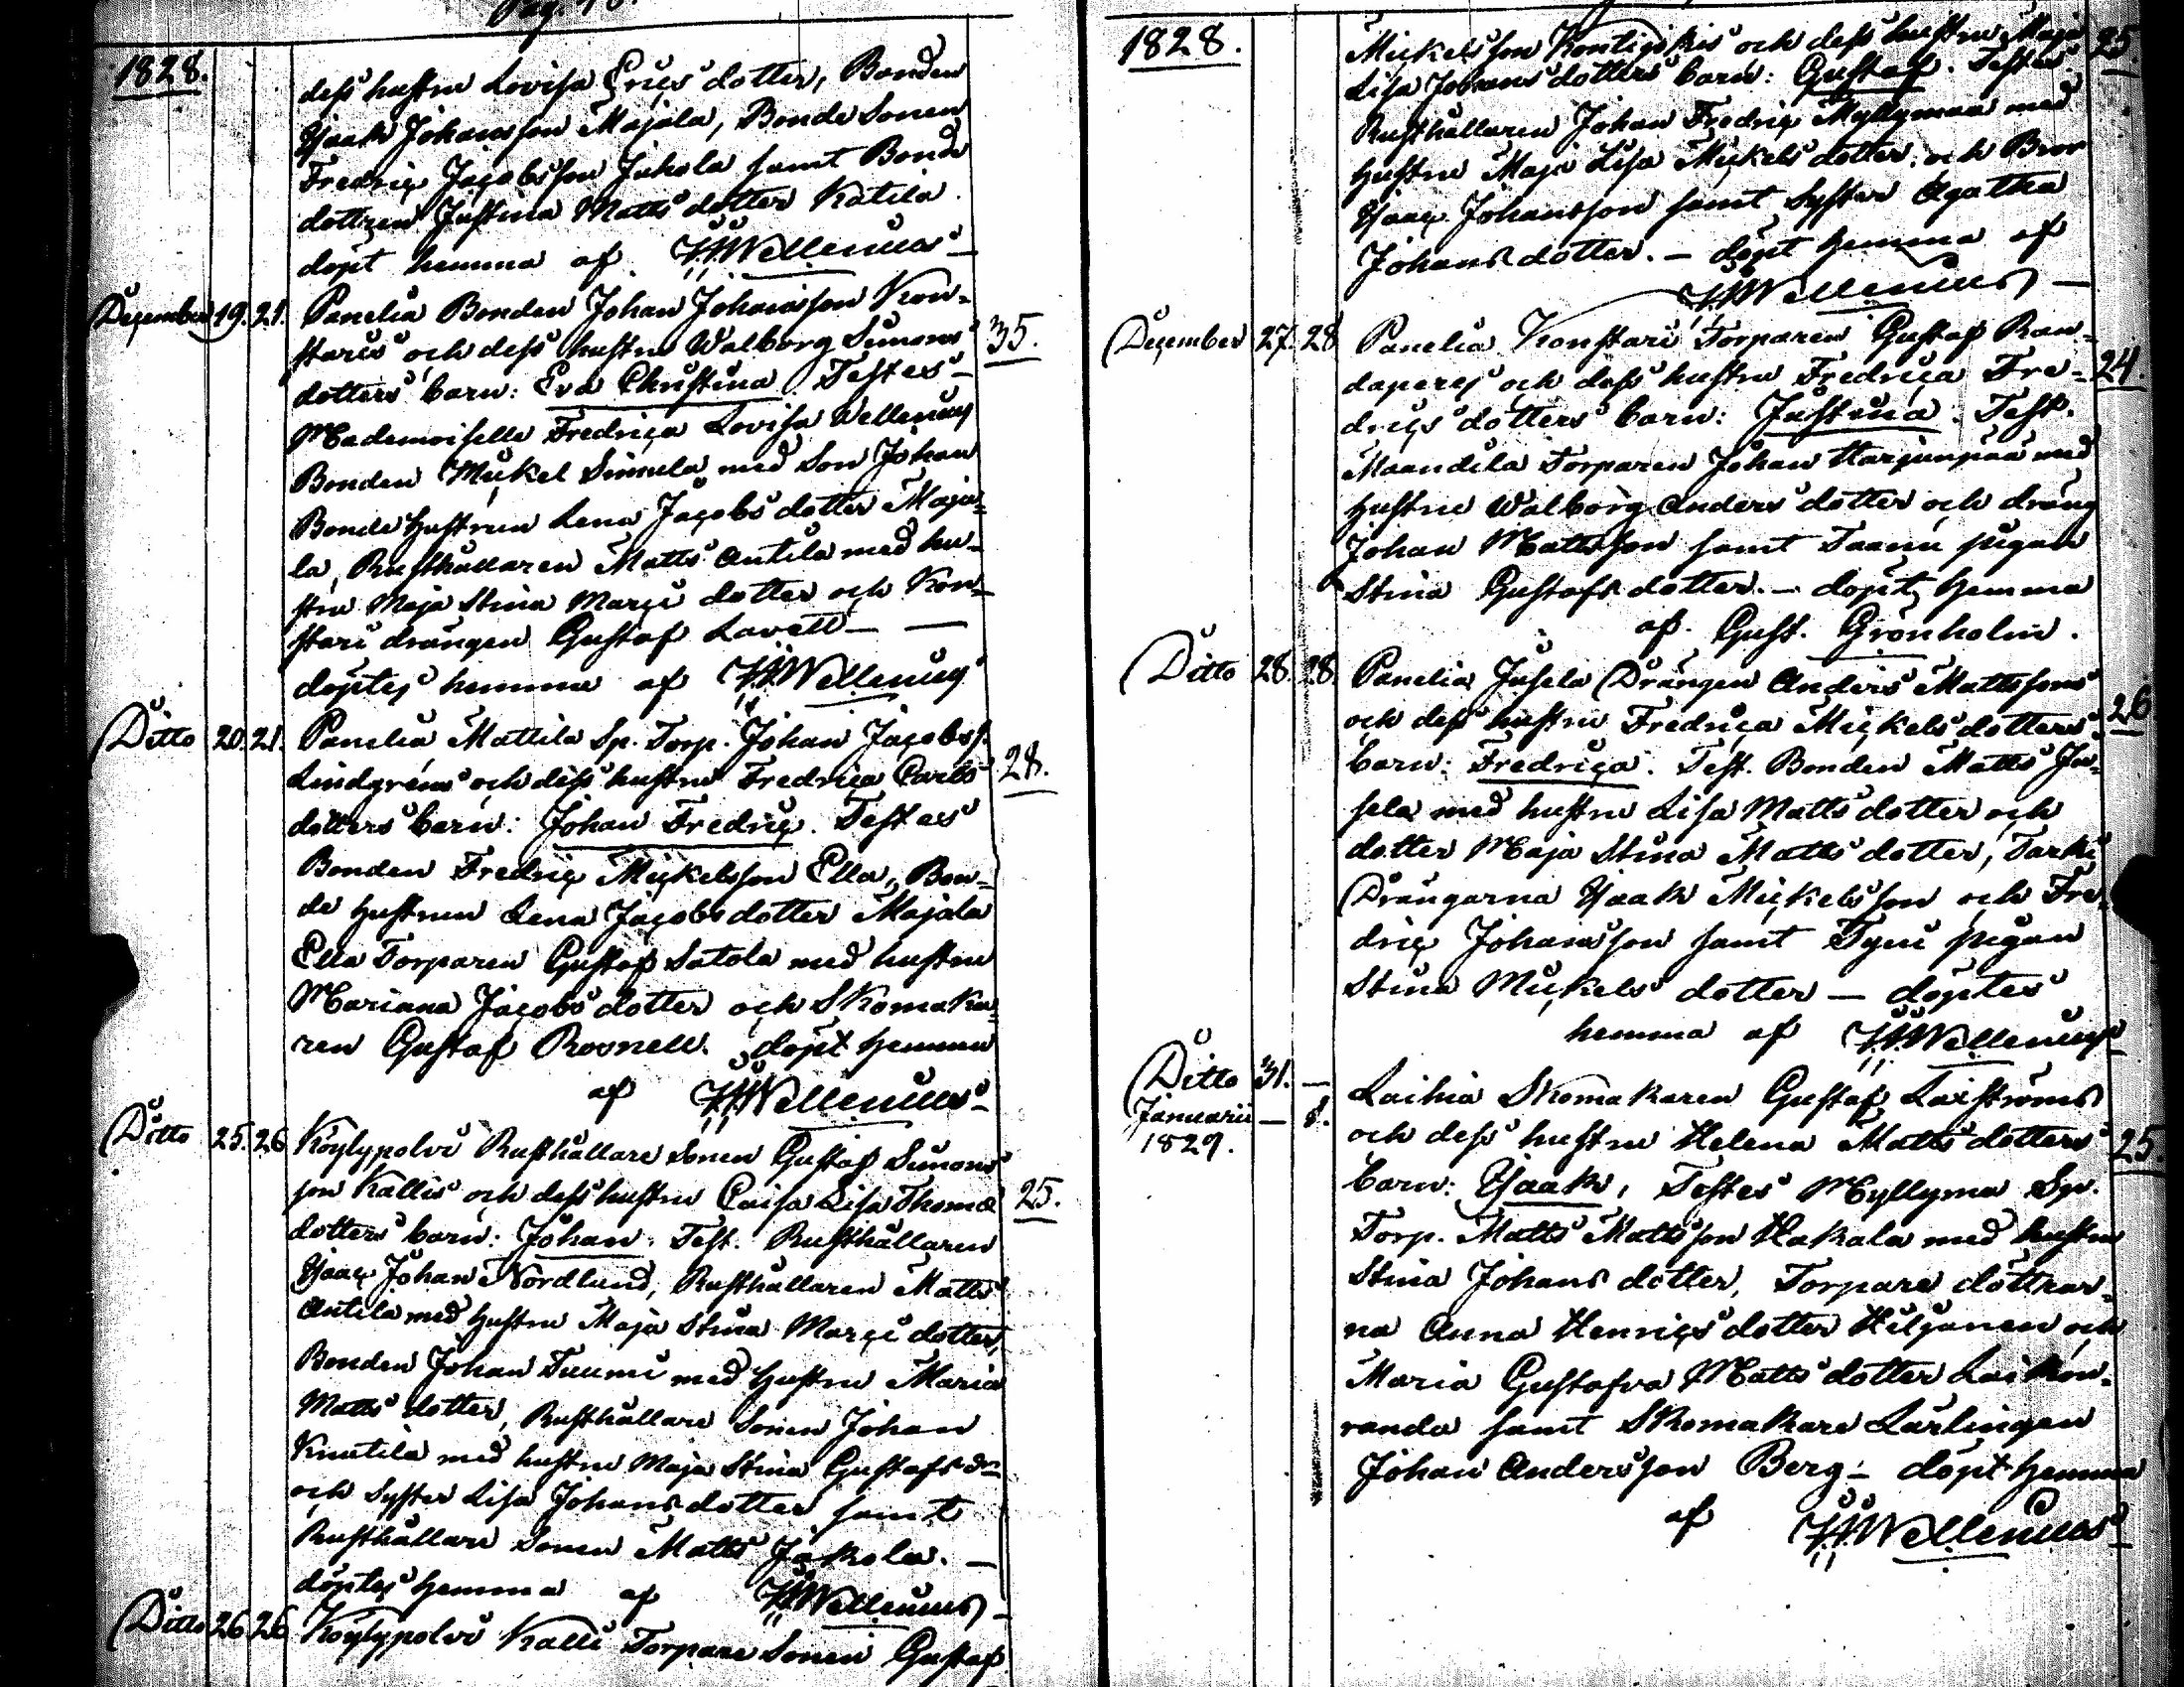 1828.
dess hustru Lovisa Erics dotter, Bonden
Isaak Johansson Majala, Bonde Sonen
Fredric Jacobsson Juhola samt Bond
dottren Justina Matts dotter Katila.
döpt hemma af Wellenius
December 19. 21. Panelia Bonden Johan Johansson Kon-
staris och dess hustru Walborg Simons 35.
dotters barn: Eva Christina. Testes
Mademoiselle Fredrica Lovisa Wellenius
Bonden Mickel Simula med Son Johan
Bonde Hustrun Lena Jacobs dotter Maja-
la, Rusthållaren Matts Antila med hu-
stru Maja Stina Marci dotter och Kon-
stari drängen Gustaf Lavell
döptes hemma af Wellenius
Ditto 20. 21. Panelia Mattila Sp. Torp. Johan Jacobss.
Lindgrens och dess hustru Fredrica Carls 28.
dotters barn: Johan Fredric. Testes
Bonden Fredric Mickelsson Ella, Bon-
de Hustrun Lena Jacobs dotter Majala
Ella Torparen Gustaf Satola med hustru
Mariana Jacobs dotter och Skomaka-
ren Gustaf Rosnell. döpt hemma
af Wellenius
Ditto 25. 26 Köylypolvi Rusthållare Sonen Gustaf Simons
son Kallis och dess hustru Caisa Lisa Thomæ 25.
dotters barn: Johan. Test. Rusthållaren
Isaac Johan Nordlund, Rusthållaren Matts
Antila med Hustru Maja Stina Marci dotter,
Bonden Johan Tuumi med Hustru Maria
Matts dotter, Rusthållare Sonen Johan
Knutila med hustru Maja Stina Gustafs dr
och Syster Lisa Johans dotter samt
Rusthållare Sonen Matts Jakola. —
döptes hemma af Wellenius
Ditto 26 26 Köylypolvi Kalli Torpare Sonen Gustaf
1828.
Mickelsson och dess hustru Maja 25.
Lisa Johans dotters barn: Gustaf. Testes
Rusthållaren Johan Fredric Myllymaa med
Hustru Maja Lisa Mickels dotter, och Bror
Isaac Johansson samt Syster Agatha
Johans dotter. — döpt hemma af
Wellenius
December 27. 28 Panelia Konstari Torparen Gustaf Ran-
daperes och dess hustru Fredrica Fre- 24.
drics dotters barn: Justina. Test.
Maandila Torparen Johan Harjunpää med
Hustru Walborg Anders dotter och dräng
Johan Mattsson samt Taanu pigan
Stina Gustafs dotter. — döpt hemma
af Gust. Grönholm.
Ditto 28. 28. Panelia Jusela Drängen Anders Mattssons
och dess hustru Fredrica Mickels dotters 26
barn: Fredrica. Test. Bonden Matts Ju-
sela med hustru Lisa Matts dotter och
dotter Maja Stina Matts dotter, Tarki
Drängarna Isaak Mickelsson och Fre-
dric Johansson samt Tyni pigan
Stina Mickels dotter — döptes
hemma af Wellenius
Ditto 31. — Laihia Skomakaren Gustaf Laiströms
Januarii — 1. och dess hustru Helena Matts dotters 25.
1829. barn: Isaak, Testes Myllyma Sp.
Torp. Matts Mattsson Hakala med hustru
Stina Johans dotter, Torpare döttrar-
na Anna Henrics dotter Hiljanen och
Maria Gustafva Matts dotter Laihon-
randa samt Skomakare Lärlingen
Johan Andersson Berg — döpt hemma
af Wellenius